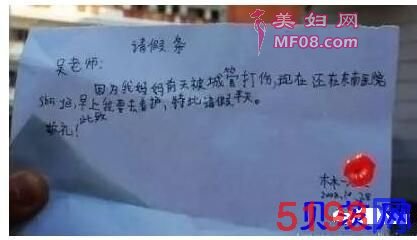 美妇网
MF08.com
请假条
吴老师:
因为我妈妈前天被城管打伤,现在还在东南医院
早上我要去看护,特此请假半天。
此致
敬礼!
林
5198
贝茨网